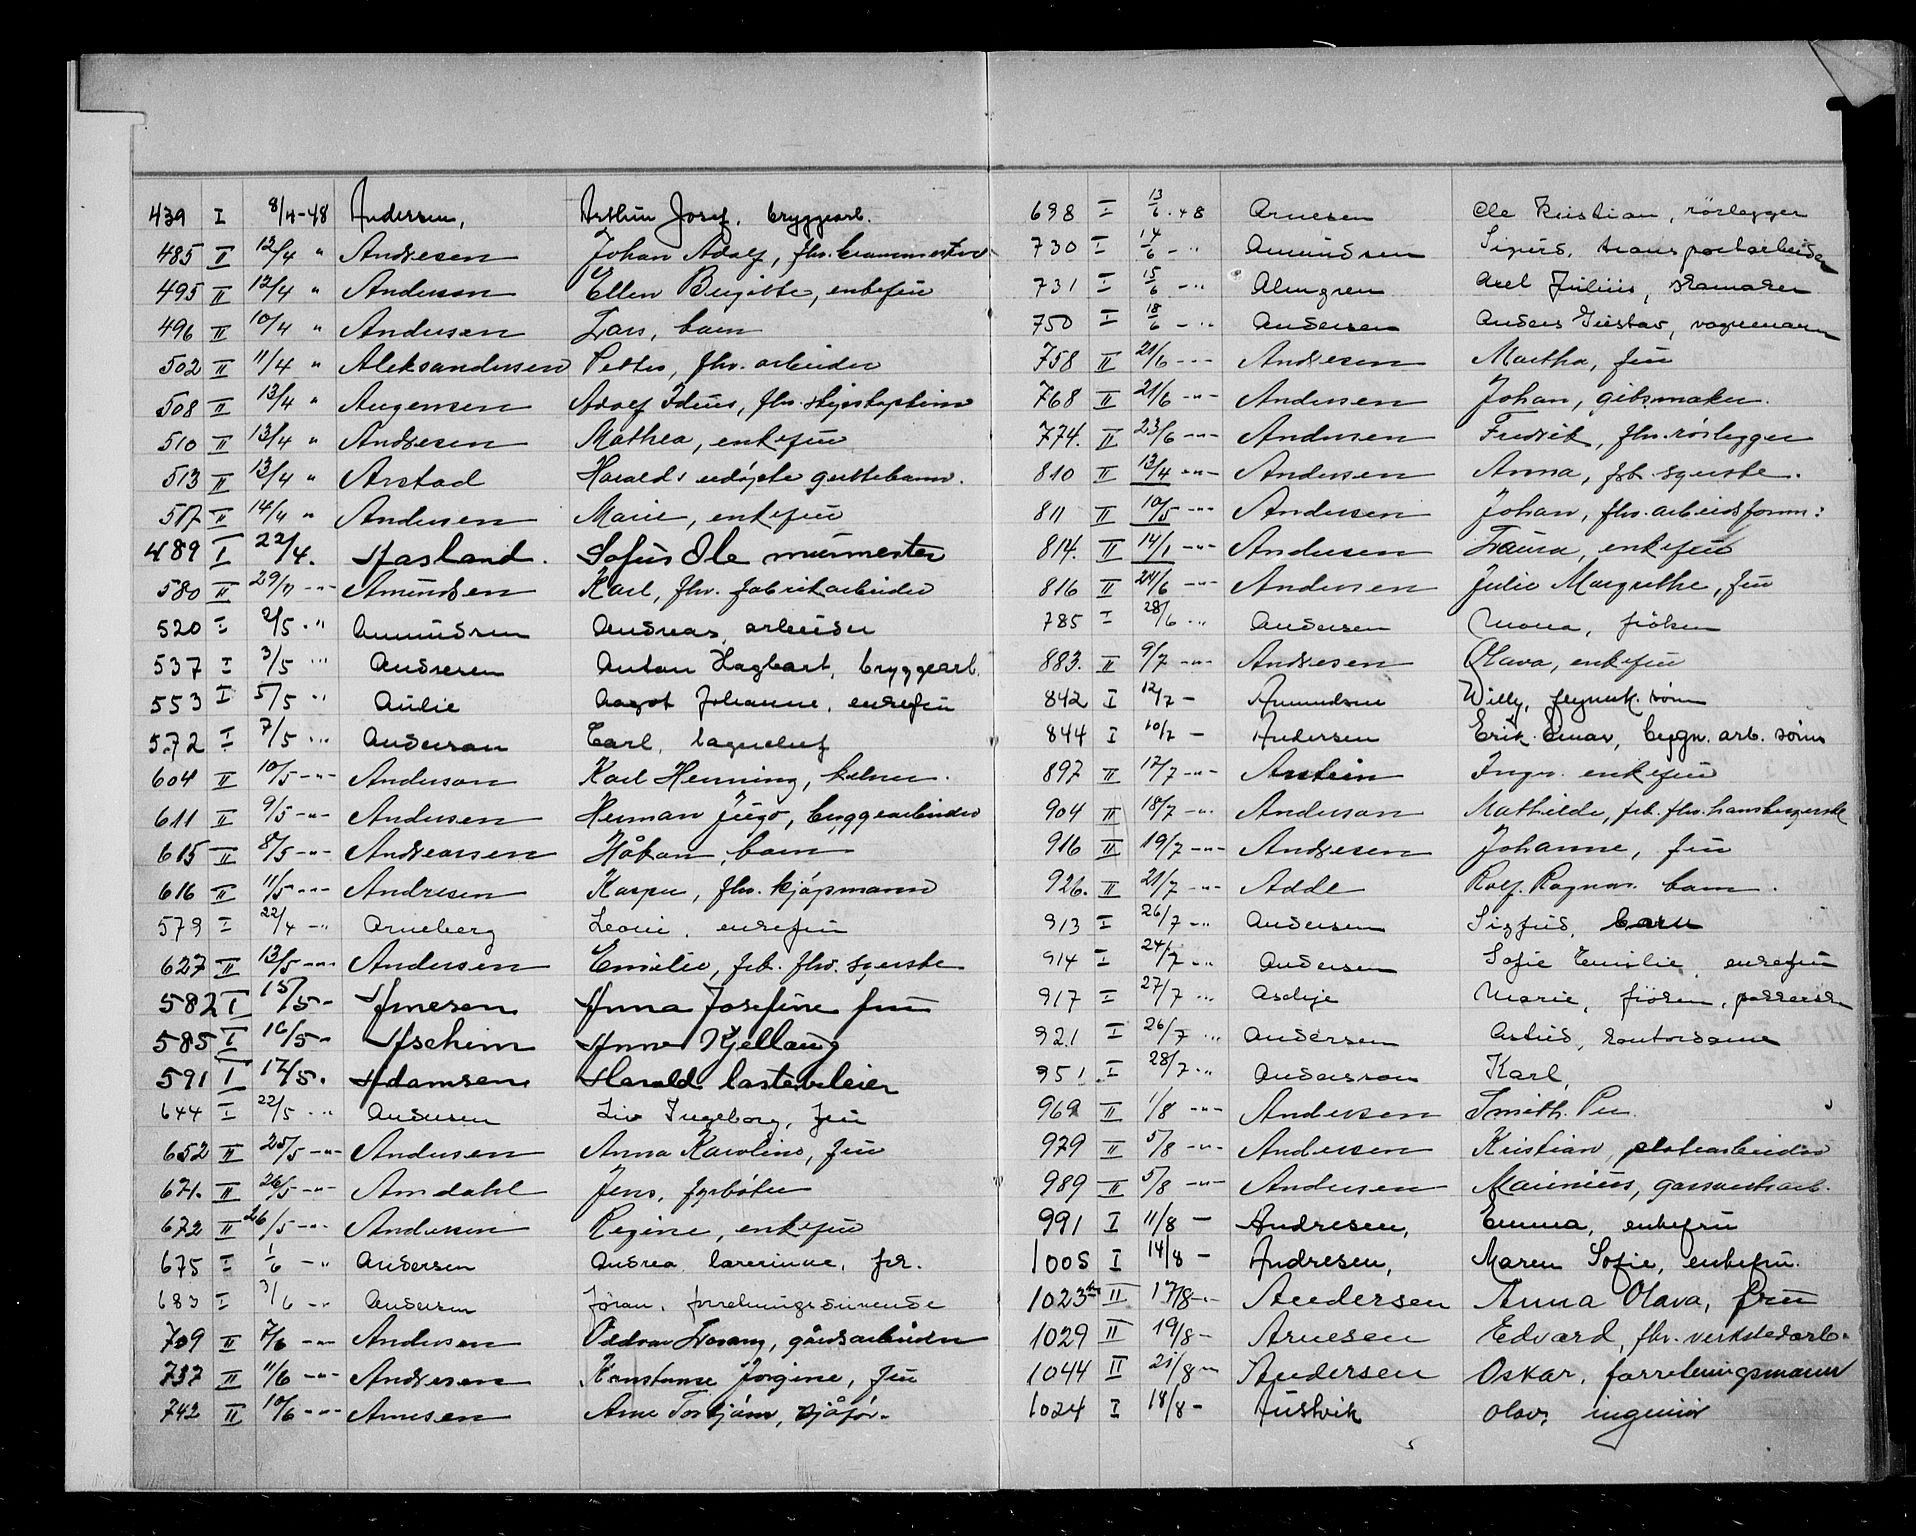 439 I 8/4-48 Andersen, Arthur Josef, bryggearb.
485 II 12/4 " Andresen Johan Adolf, fhv.
495 II 12/4 " Anderson Ellen Birgitte, enkefru
496 II 10/4 " Andersen Lars, barn
502 II 11/4 " Aleksandersen Petter, fhv. arbeider
508 II 13/4 " Augensen Adolf Ideus, fhv. skipskaptein
510 II 13/4 " Andresen Mathea, enkefru
513 II 13/4 " Arstad Haralds udøpte guttebarn.
517 II 14/4 " Andersen Marie, enkefru
489 I 22/4. Aasland. Sofus Ole murmester
580 II 29/4 -"- Amundsen Karl, fhv. fabrikarbeider
520 I 2/5 -" Amundsen Andreas, arbeider
537 I 3/5 -" Andresen Anton Hagbart, bryggearb.
553 I 5/5 -" Aulie Aagot Johanne, enkefru
572 I 7/5 -" Anderson Carl, lagerchef
604 II 10/5 -"- Anderson Karl Henning, kelner.
611 II 9/5 -"- Andersen Herman Hugo, bryggearbeider
615 II 8/5 -"- Andreassen Håkon, barn
616 II 11/5 -"- Andresen Kasper, fhv. kjøpmann
579 I 22/4 -" Arneberg Leoni, enkefru
627 II 13/5 -"- Andersen Emilie, frk. fhv. syerske
582 I 15/5- Arnesen Anna Josefine fru
585 I 16/5- Aschim Anne Kjellaug
591 I 12/5. Adamsen Harald lastebileier
644 I 22/5 -" Andersen Liv Ingeborg, fru
652 II 25/5 -"- Andersen Anna Karoline, fru
671. II 26/5 -"- Amdahl Jens, fyrbøter
672 II 26/5 -"- Andersen Regine, enkefru
675 I 1/6 -" Andersen Andrea lærerinne, frk.
683 I 3/6 -" Andersen Jöran, forretningsdrivende
709 II 7/6 -"- Andersen Oddvar, gårdsarbeider
737 II 11/6 -"- Andresen Konstanse Jørgine, fru
742 II 10/6 -"- Arnesen Arne Torbjørn, sjåfør.
698 I 13/6.48 Arnesen Ole Kristian, rörlegger
730 I 14/6 -" Amundsen Sigurd, transportarbeider
731 I 15/6 -" Almgren Axel Julius, skomaker
750 I 18/6 -" Andersen Anders Gustav, vognmann
758 II 21/6 -"- Andresen Martha, fru
768 II 21/6 -"- Andersen Johan, gibsmaker.
774. II 23/6 -"- Andersen Fredrik, fhv. rörlegger
810 II 13/4 -"- Andersen Anna, frk. syerske.
811 II 10/5 -"- Andersen Johan, fhv. arbeidsform:
814. II 14/1 -"- Andersen Laura, enkefru
816 II 24/6 -"- Andersen Julie Margrethe, fru
785 I 28/6 -" Andersen Mona, fröken
883. II 9/7 -"- Andresen Olava, enkefru
842 I 12/7 - Amundsen Willy, sønn
844 I 10/7 - Andersen Erik Einar, bygn. arb. sønn
897 II 12/7 -"- Arstein Inga. enkefru
904 II 18/7 -"- Anderson Mathilde, frk. fhv.
916 II 19/7 -"- Andresen Johanne, fru
926. II 21/7 -"- Adde Rolf Ragnar. barn.
913 I 26/7 -" Andersen Sigfrid, barn
914 I 24/7 -" Andersen Sofie Emilie, enkefru
917 I 27/7 -" Askje Marie, fröken,
921 I 26/7 -" Andersen Astrid, kontordame
951. I 28/7 -" Andersson Karl,
969 II 1/8 -"- Andersen Smith. Per.
979 II 5/8 -"- Andersen Kristian, platearbeider
989 II 5/8 -"- Andersen Marinius, gassverksarb.
991 I 11/8 - Andresen, Emma, enkefru
1005 I 14/8 - Andresen, Maren Sofie, enkefru.
1023 II 17/8 -"- Andersen Anna Olava, fru
1029 II 19/8- Arnesen Edvard, fhv. verkstedarb.
1044 II 21/8 Andersen Oskar, forretningsmann
1024 I 18/8- Austvik Olav, ingeniør